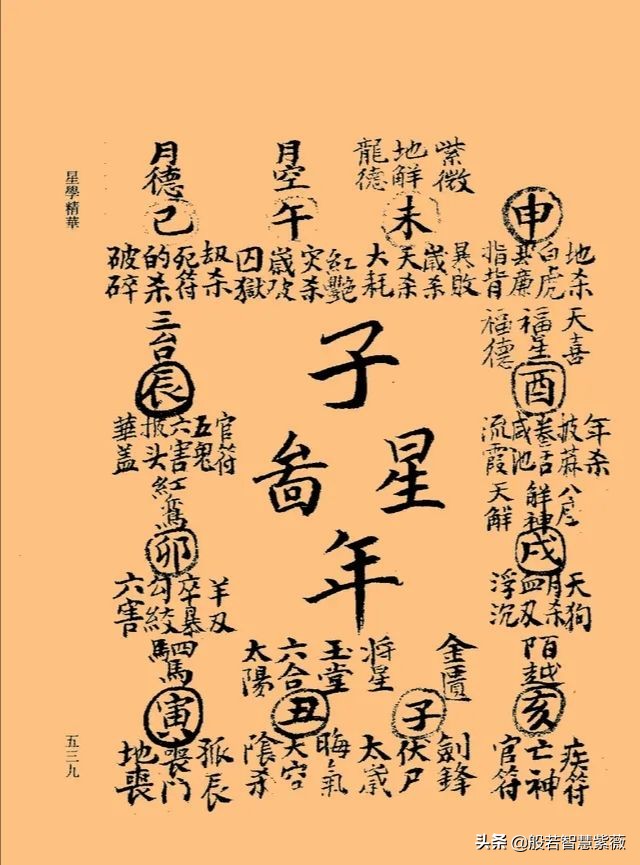 星學精華
紫微
地解
龍德
月空
月德
申
未
午
巳
地杀
白虎
指背
暴敗
歲杀
天杀
大耗
紅艷
灾杀
歲破
囚獄
劫杀
死符
的杀
破碎
天喜
福星
福德
酉
三台
辰
子
星
年
年杀
披蔴
卷舌
咸池
流霞
官符
五鬼
六害
披头
華盖
八座
解神
天解
戌
紅鸞
卯
天狗
月杀
血刃
浮沉
羊刃
卒暴
勾絞
六害
陌越
亥
金匱
将星
子
玉堂
六合
太陽
丑
駟馬
寅
疾符
亡神
官符
劍鋒
伏尸
太歲
晦氣
天空
陰杀
孤辰
喪門
地喪
五三九
头条 @般若智慧紫薇